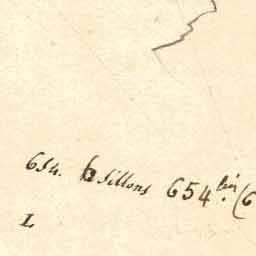 654. h Sillons 654. (6
L